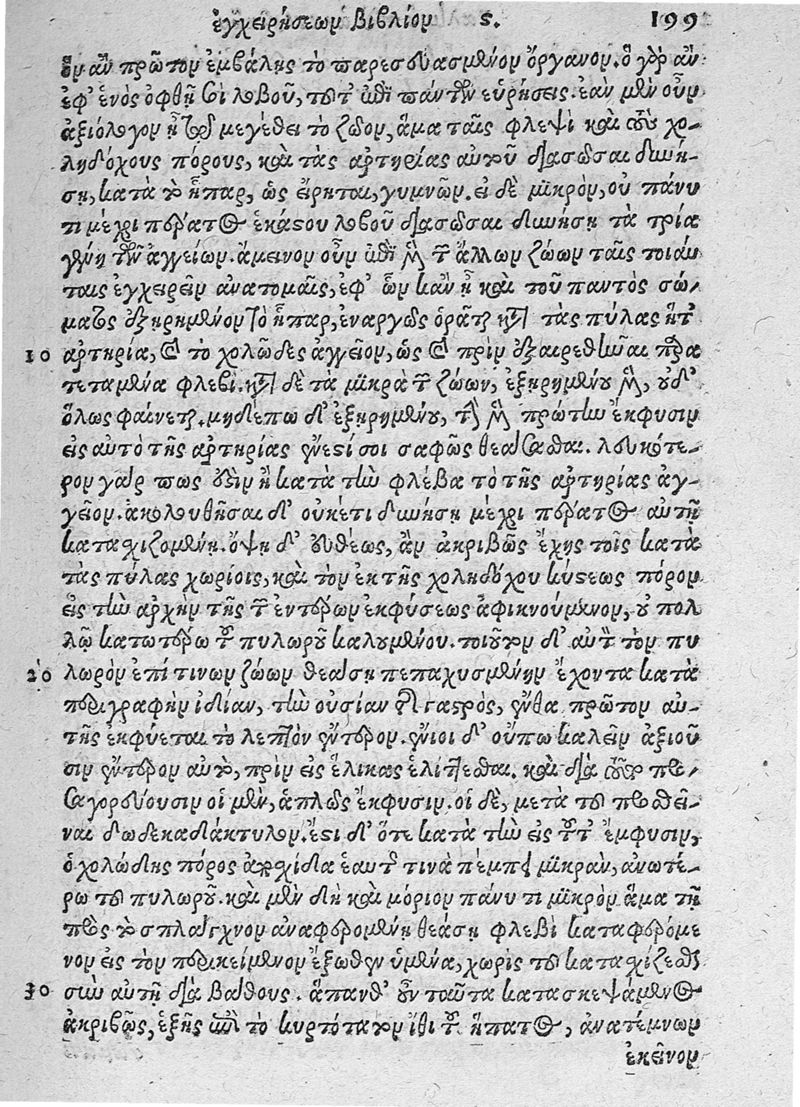 ἐγχειρήσεων βιβλίον ς. 199
ὃν ἂν πρῶτον ἐμβάλῃς τὸ παρεσκευασμένον ὄργανον. ὃ γὰρ ἂν
ἐφ' ἑνὸς ὀφθῇ σοι λοβοῦ, τοῦτ' ἐπὶ πάντων εὑρήσεις. ἐὰν μὲν οὖν
ἀξιόλογον ᾖ τῷ μεγέθει τὸ ζῶον, ἅμα ταῖς φλεψὶ καὶ τοὺς χο-
ληδόχους πόρους, καὶ τὰς ἀρτηρίας αὐτοῦ διασῶσαι δυνή-
σῃ, κατὰ τὸ ἧπαρ, ὡς εἴρηται, γυμνῶν. εἰ δὲ μικρὸν, οὐ πάνυ
τι μέχρι πέρατος ἑκάστου λοβοῦ διασῶσαι δυνήσῃ τὰ τρία
γένη τῶν ἀγγείων. ἄμεινον οὖν ἐπὶ μεγάλων ζώων ταῖς τοιαύ
ταις ἐγχειρεῖν ἀνατομαῖς, ἐφ' ὧν κἂν ᾖ καὶ τοῦ παντὸς σώ-
ματος ἐξῃρημένον τὸ ἧπαρ, ἐναργῶς ὁρᾶται κατὰ τὰς πύλας ἥτ'
10 ἀρτηρία, καὶ τὸ χολῶδες ἀγγεῖον, ὡς καὶ πρὶν ἐξαιρεθῆναι παρα
τεταμένα φλεβί. κατὰ δὲ τὰ μικρὰ τῶν ζώων, ἐξῃρημένου μὲν, οὐδ'
ὅλως φαίνεται. μηδέπω δ' ἐξῃρημένου, τὴν μὲν πρώτην ἔκφυσιν
εἰς αὐτὸ τῆς ἀρτηρίας ἔνεστί σοι σαφῶς θεάσασθαι. λευκότε-
ρον γάρ πως ἐστὶν ἢ κατὰ τὴν φλέβα τὸ τῆς ἀρτηρίας ἀγ-
γεῖον. ἀκολουθῆσαι δ' οὐκέτι δυνήσῃ μέχρι πέρατος αὐτῇ
κατασχιζομένῃ. ὄψῃ δ' εὐθέως, ἂν ἀκριβῶς ἔχῃς τοῖς κατὰ
τὰς πύλας χωρίοις, καὶ τὸν ἐκ τῆς χοληδόχου κύστεως πόρον
εἰς τὴν ἀρχὴν τῆς τῶν ἐντέρων ἐκφύσεως ἀφικνούμενον, οὐ πολ
λῷ κατωτέρω τοῦ πυλωροῦ καλουμένου. τοῦτον δ' αὐτὸν τὸν πυ
20 λωρὸν ἐπί τινων ζώων θεάσῃ πεπαχυσμένην ἔχοντα κατὰ
περιγραφὴν ἰδίαν, τὴν οὐσίαν τῆς γαστρὸς, ἔνθα πρῶτον αὐ-
τῆς ἐκφύεται τὸ λεπτὸν ἔντερον. ἔνιοι δ' οὔπω καλεῖν ἀξιοῦ
σιν ἔντερον αὐτὸ, πρὶν εἰς ἕλικας ἑλίττεσθαι. καὶ διὰ τοῦτο προ-
σαγορεύουσιν οἱ μὲν, ἁπλῶς ἔκφυσιν. οἱ δὲ, μετὰ τοῦ προσθεῖ-
ναι δωδεκαδάκτυλον. ἔστι δ' ὅτε κατὰ τὴν εἰς τοῦτ' ἔμφυσιν,
ὁ χολώδης πόρος ἀποσχίδα ἑαυτοῦ τινὰ πέμπει μικρὰν, ἀνωτέ-
ρω τοῦ πυλωροῦ. καὶ μὲν δὴ καὶ μόριον πάνυ τι μικρὸν ἅμα τῇ
πρὸς τὸ σπλάγχνον ἀναφερομένῃ θεάσῃ φλεβὶ καταφερόμε
νον εἰς τὸν περικείμενον ἔξωθεν ὑμένα, χωρὶς τοῦ κατασχίζεσθαι
30 σὺν αὐτῇ διὰ βάθους. ἅπανθ' οὖν ταῦτα κατασκεψάμενος
ἀκριβῶς, ἑξῆς ἐπὶ τὸ κυρτότατον ἴθι τοῦ ἥπατος, ἀνατέμνων
ἐκεῖνον